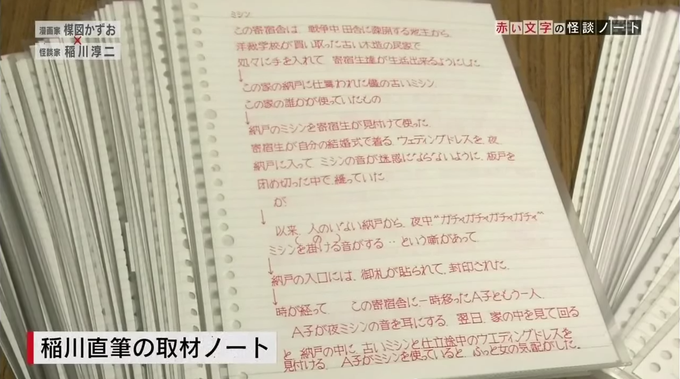 漫画家 楳図かずお
×
怪談家 稲川淳二
赤い文字の怪談ノート
ミシン
この寄宿舎は、戦争中田舎に疎開する地主から
洋裁学校が買い取った古い木造の民家で
処々に手を入れて 寄宿生達が生活出来るようにした
↓
この家の納戸に仕舞われた 古いミシン
この家の誰かが使っていたもの
↓
納戸のミシンを寄宿生が見付けて使った
寄宿生が自分の結婚式で着る、ウェディングドレスを、夜
納戸に入って ミシンの音が迷惑にならないように、板戸を
閉め切った中で、縫っていた
が
↓
以来 人のいない納戸から、夜中"ガチィガチィガチィガチィ"
(の)
ミシンを掛ける音がする‥という噂があって
↓
納戸の入口には、御札が貼られて、封印された
↓
時が経って この寄宿舎に一時移ったA子ともう一人
A子が夜ミシンの音を耳にする、翌日、家の中を見て回る
と 納戸の中に 古いミシンと仕立途中のウエディングドレスを
見付ける A子がミシンを使っていると ふっと女の気配がした。
稲川直筆の取材ノート